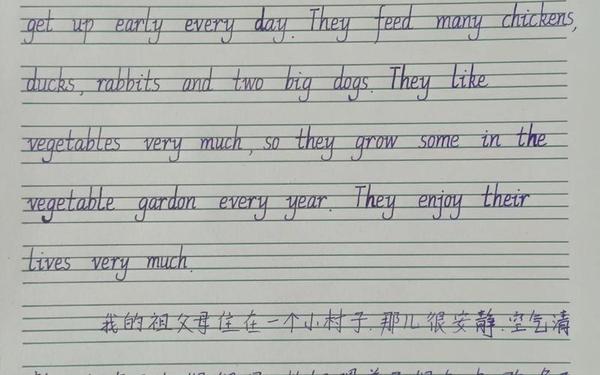 get up early every day. They feed many chickens,
ducks, rabbits and two big dogs. They like
vegetables very much, so they grow some in the
vegetable gardon every year. They enjoy their
lives very much.
我的祖父母住在一个小村子.那儿很安静.空气清